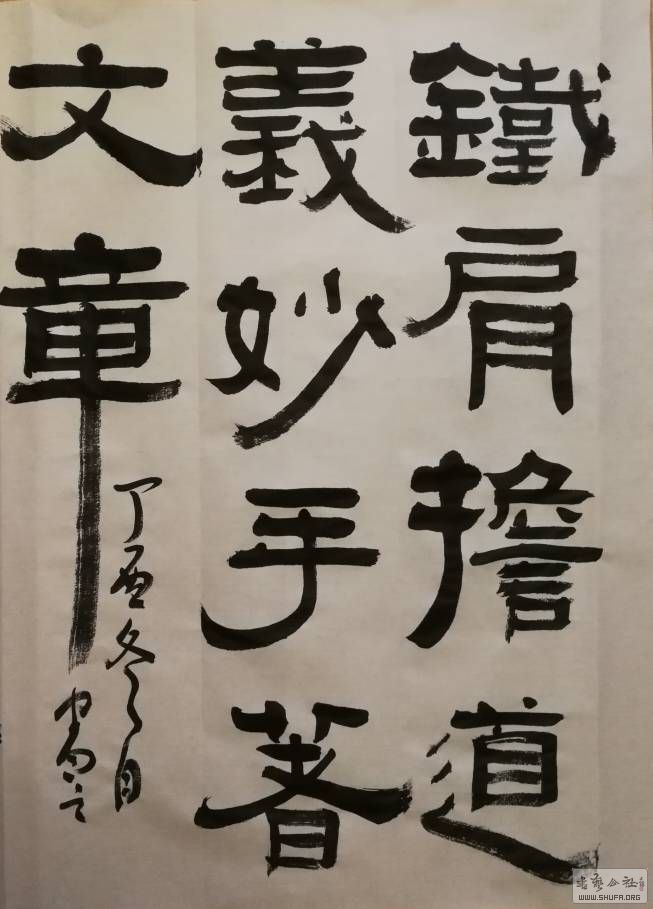 鐵肩擔道
義妙手著
文章
丁酉冬月
書藝公社
WWW.SHUFA.ORG